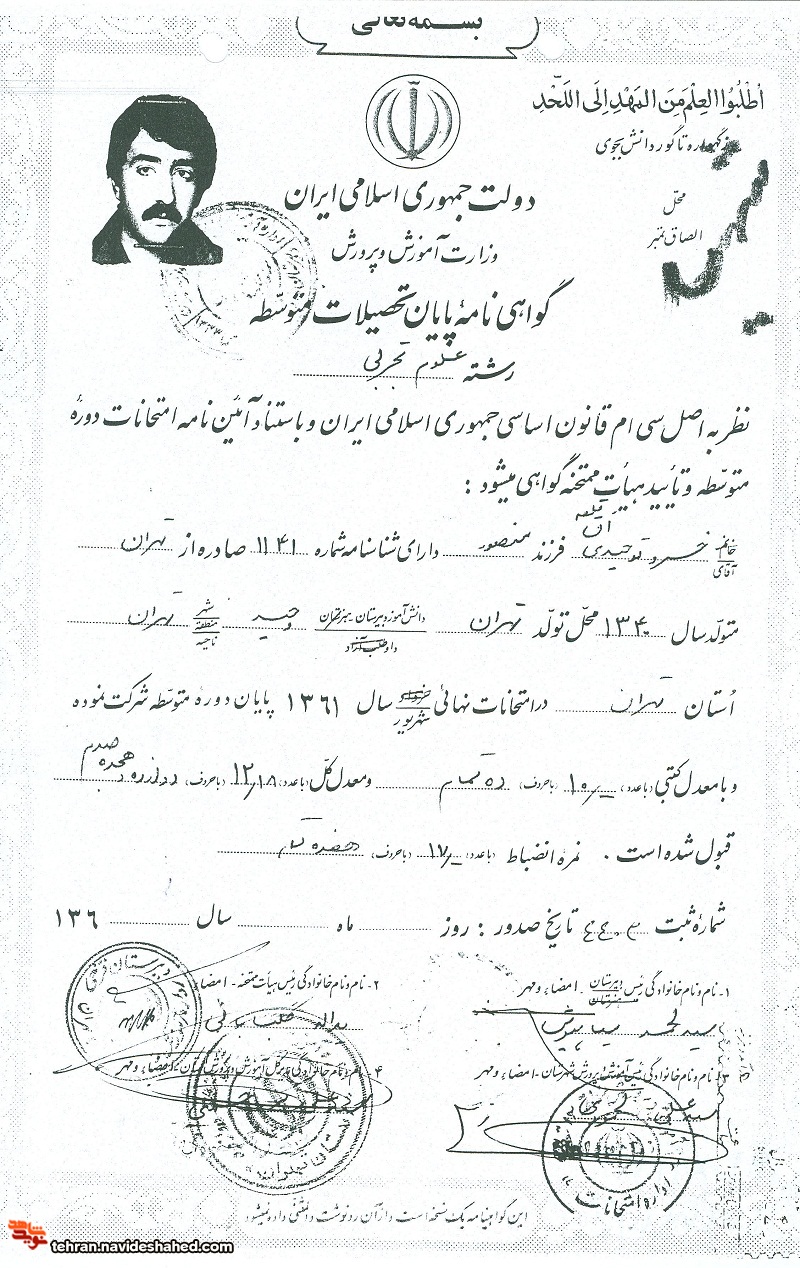 بسمه تعالی
اُطْلُبُوا الْعِلْمَ مِنَ الْمَهْدِ اِلَی اللَّحْدِ
زگهواره تا گور دانش بجوی
محل
الصاق تمبر
دولت جمهوری اسلامی ایران
وزارت آموزش و پرورش
گواهی نامهٔ پایان تحصیلات متوسطه
رشته علوم تجربی
نظر به اصل سی ام قانون اساسی جمهوری اسلامی ایران و باستناد آئین نامه امتحانات دورهٔ
متوسطه و تأیید هیأت ممتحنه گواهی میشود :
خانم آقای خسرو توحیدی فرزند منصور دارای شناسنامه شماره ۱۱۴۱ صادره از تهران
متولد سال ۱۳۴۰ محل تولد تهران دانش آموز دبیرستان - هنرستان داوطلب آزاد وحید شهر منطقه ناحیه تهران
اُستان تهران در امتحانات نهائی خرداد شهریور سال ۱۳۶۱ پایان دوره متوسطه شرکت نموده
و با معدل کتبی (با عدد) ۱۰/- (با حروف) ده تمام و معدل کل (با عدد) ۱۲/۱۸ (با حروف) دوازده و هجده صدم
قبول شده است . نمره انضباط (با عدد) ۱۷/- (با حروف) هفده تمام
شمارهٔ ثبت تاریخ صدور : روز ماه سال ۱۳۶
۱- نام و نام خانوادگی رئیس دبیرستان هنرستان - امضاء و مهر
۲- نام و نام خانوادگی رئیس هیأت ممتحنه - امضاء
۳- نام و نام خانوادگی رئیس آموزش و پرورش شهرستان - امضاء و مهر
۴- نام و نام خانوادگی مدیر کل آموزش و پرورش استان - امضاء و مهر
اداره امتحانات
استان تهران
این گواهینامه یک نسخه است و از آن رونوشت و المثنی داده نمیشود
نوید شاهد
tehran.navideshahed.com